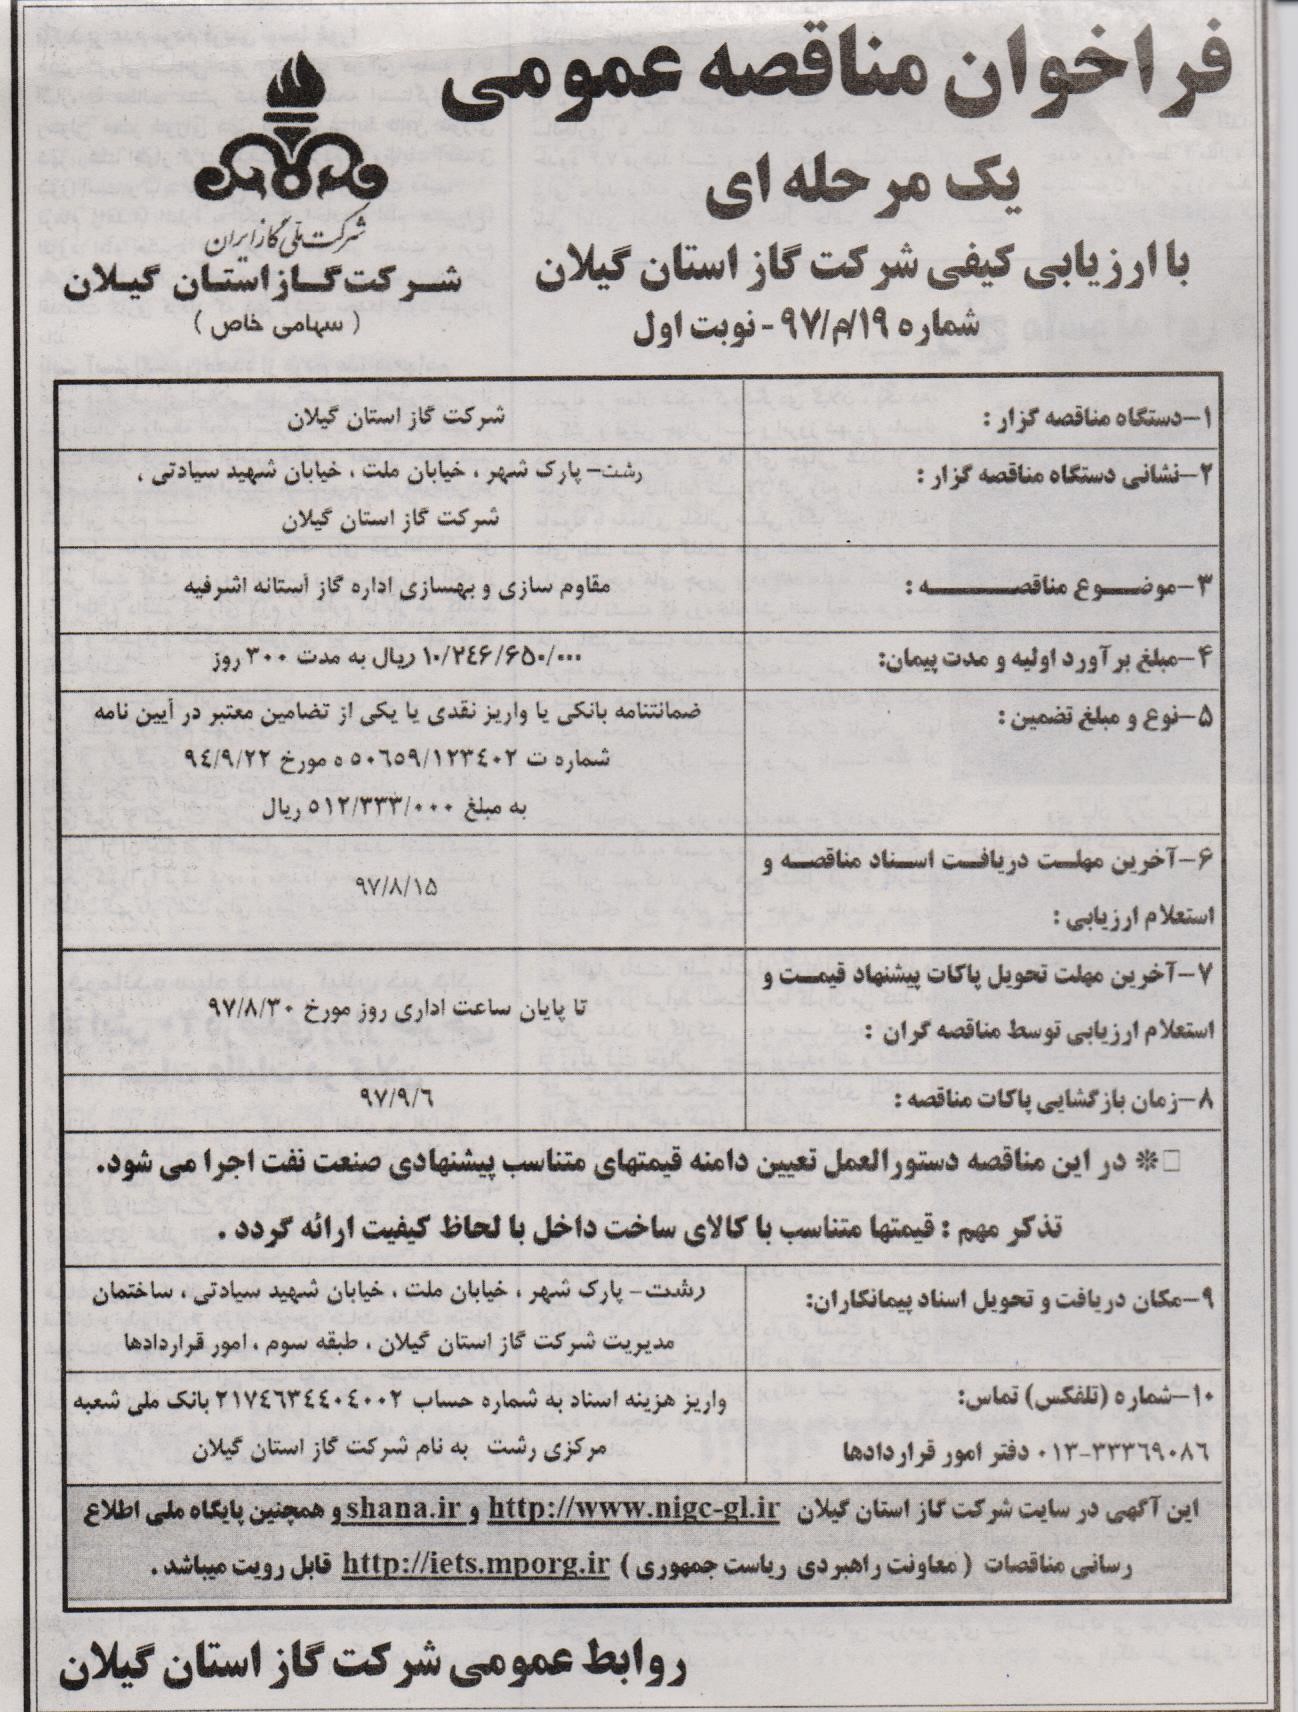 فراخوان مناقصه عمومی
یک مرحله ای
با ارزیابی کیفی شرکت گاز استان گیلان
شماره ۱۹/م/۹۷ - نوبت اول
شرکت ملی گاز ایران
شرکت گاز استان گیلان
( سهامی خاص )
۱-دستگاه مناقصه گزار :
شرکت گاز استان گیلان
۲-نشانی دستگاه مناقصه گزار :
رشت- پارک شهر ، خیابان ملت ، خیابان شهید سیادتی ،
شرکت گاز استان گیلان
۳-موضوع مناقصه :
مقاوم سازی و بهسازی اداره گاز آستانه اشرفیه
۴-مبلغ برآورد اولیه و مدت پیمان:
۱۰/۲۴۶/۶۵۰/۰۰۰ ریال به مدت ۳۰۰ روز
۵-نوع و مبلغ تضمین :
ضمانتنامه بانکی یا واریز نقدی یا یکی از تضامین معتبر در آیین نامه
شماره ت ۵۰۶۵۹/۱۲۳٤۰۲ ه مورخ ۹٤/۹/۲۲
به مبلغ ۵۱۲/۳۳۳/۰۰۰ ریال
۶-آخرین مهلت دریافت اسناد مناقصه و
استعلام ارزیابی :
۹۷/۸/۱۵
۷-آخرین مهلت تحویل پاکات پیشنهاد قیمت و
استعلام ارزیابی توسط مناقصه گران :
تا پایان ساعت اداری روز مورخ ۹۷/۸/۳۰
۸-زمان بازگشایی پاکات مناقصه :
۹۷/۹/٦
□※ در این مناقصه دستورالعمل تعیین دامنه قیمتهای متناسب پیشنهادی صنعت نفت اجرا می شود.
تذکر مهم : قیمتها متناسب با کالای ساخت داخل با لحاظ کیفیت ارائه گردد .
۹-مکان دریافت و تحویل اسناد پیمانکاران:
رشت- پارک شهر ، خیابان ملت ، خیابان شهید سیادتی ، ساختمان
مدیریت شرکت گاز استان گیلان ، طبقه سوم ، امور قراردادها
۱۰-شماره (تلفکس) تماس:
۰۱۳-۳۳۳۶۹۰۸۶ دفتر امور قراردادها
واریز هزینه اسناد به شماره حساب ۲۱۷٤٦۳٤٤۰٤۰۰۲ بانک ملی شعبه
مرکزی رشت به نام شرکت گاز استان گیلان
این آگهی در سایت شرکت گاز استان گیلان http://www.nigc-gl.ir و shana.ir و همچنین پایگاه ملی اطلاع
رسانی مناقصات ( معاونت راهبردی ریاست جمهوری ) http://iets.mporg.ir قابل رویت میباشد .
روابط عمومی شرکت گاز استان گیلان